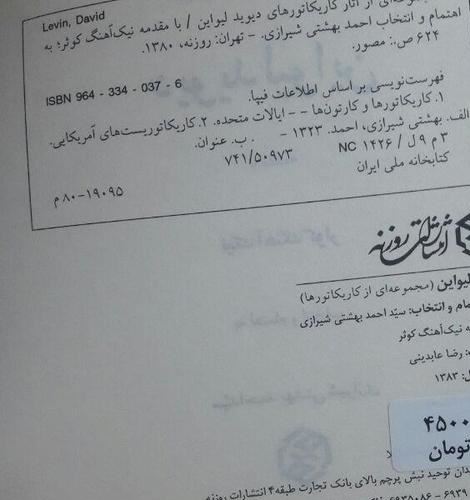 Levin, David
از آثار کاریکاتورهای دیوید لیواین / با مقدمه نیک‌آهنگ کوثر؛ به
اهتمام و انتخاب احمد بهشتی شیرازی. - تهران: روزنه، ۱۳۸۰.
۶۲۴ ص.: مصور.
ISBN 964 - 334 - 037 - 6
فهرست‌نویسی بر اساس اطلاعات فیپا.
۱. کاریکاتورها و کارتون‌ها - - ایالات متحده. ۲. کاریکاتوریست‌های آمریکایی.
الف. بهشتی شیرازی، احمد. ۱۳۲۳ - . ب. عنوان.
۳ م ۹ ل / NC ۱۴۲۶
۷۴۱/۵۰۹۷۳
کتابخانه ملی ایران
۸۰-۱۹۰۹۵ م
روزنه
لیواین (مجموعه‌ای از کاریکاتورها)
و انتخاب: سیّد احمد بهشتی شیرازی
نیک‌آهنگ کوثر
رضا عابدینی
۱۳۸۳
۴۵۰۰
تومان
توحید نبش پرچم بالای بانک تجارت طبقه۴ انتشارات روزنه